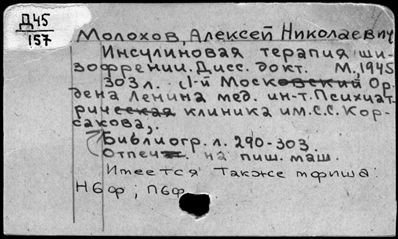 Д45
157
Молохов, Алексей Николаевич
Инсулиновая терапия ши-
зофрении. Дисс. докт. М., 1945
303 л. (1-й Московский Ор-
дена Ленина мед. ин-т. Психиат-
рическая клиника им. С.С. Кор-
сакова).
Библиогр. л. 290-303.
Отпеч. на пиш. маш.
Имеется также тфиша:
Н6ф; П6ф